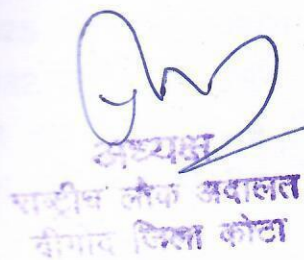 अध्यक्ष
राष्ट्रीय लोक अदालत
जिला कोटा